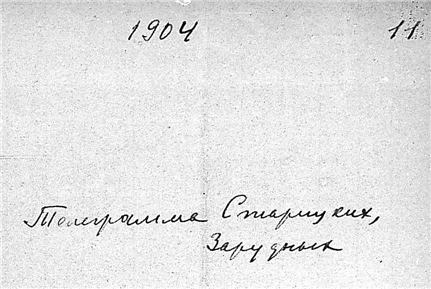 1904 11
Телеграмма Старицких,
Зарудных